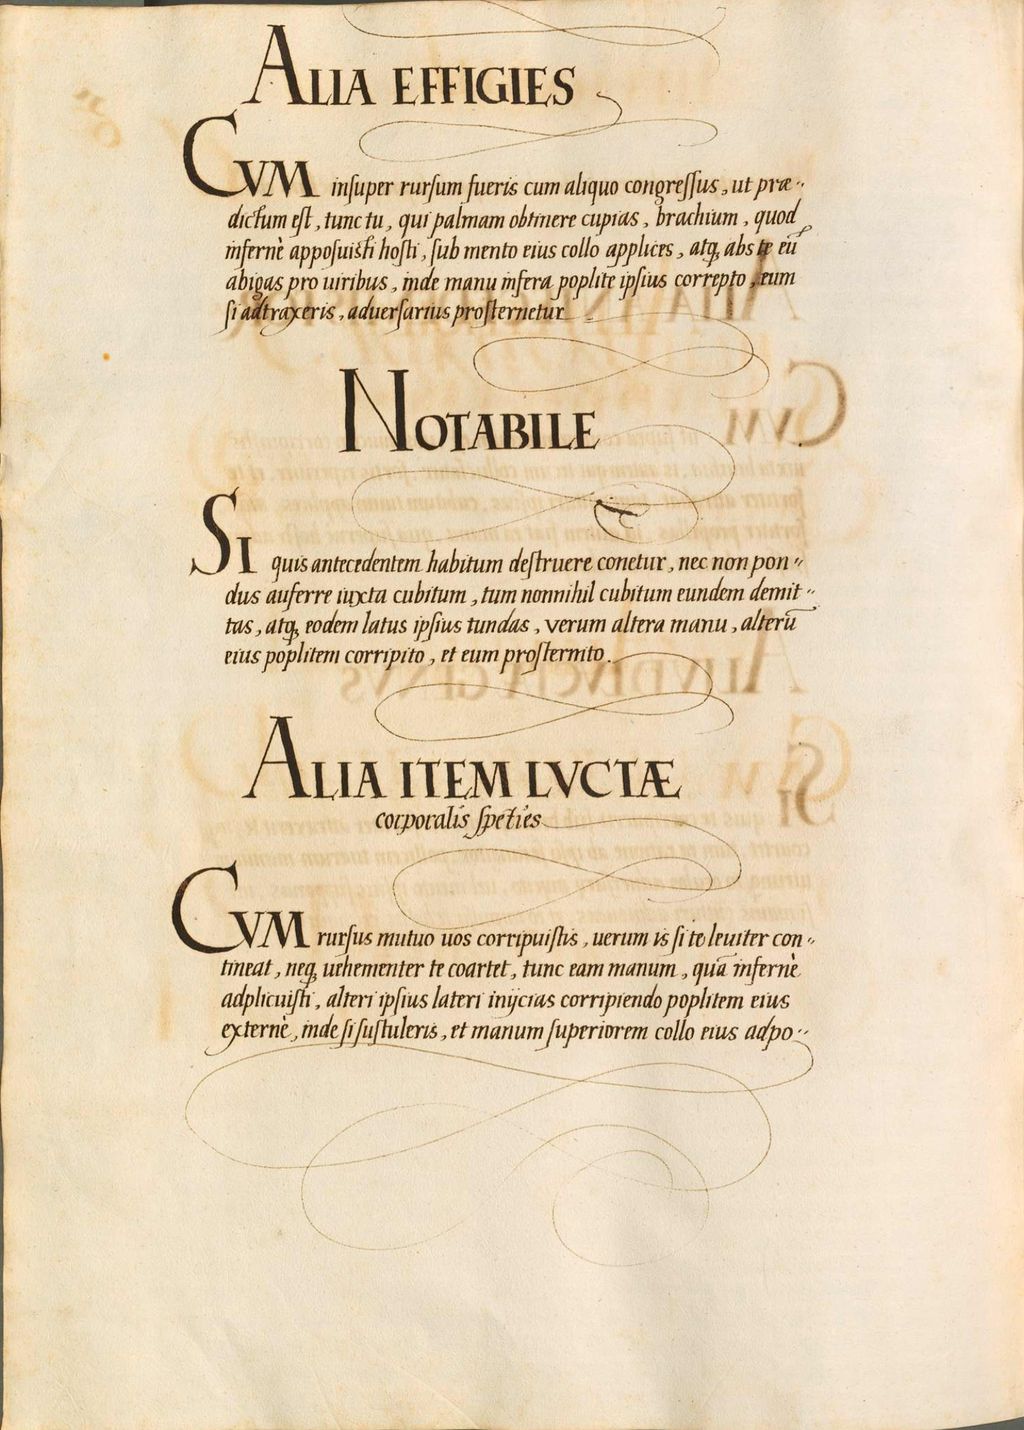 ALIA EFFIGIES
CVM inſuper rurſum fueris cum aliquo congreſſus, ut præ„
dictum eſt, tunc tu, qui palmam obtinere cupias, brachium, quod
infernè appoſuiſti hoſti, ſub mento eius collo applices, atq, abs te eū
abigas pro uiribus, inde manu infera poplite ipſius correpto, eum
ſi adtraxeris, aduerſarius proſternetur
NOTABILE
SI quis antecedentem habitum deſtruere conetur, nec non pon„
dus auferre iuxta cubitum, tum nonnihil cubitum eundem demit„
tas, atq, eodem latus ipſius tundas, verum altera manu, alterū
eius poplitem corripito, et eum proſternito.
ALIA ITEM LVCTÆ
corporalis ſpeties
CVM rurſus mutuo uos corripuiſtis, uerum is ſi te leuiter con„
tineat, neq, uehementer te coartet, tunc eam manum, quā infernè
adplicuiſti, alteri ipſius lateri inijcias corripiendo poplitem eius
externè, inde ſi ſuſtuleris, et manum ſuperiorem collo eius adpo„